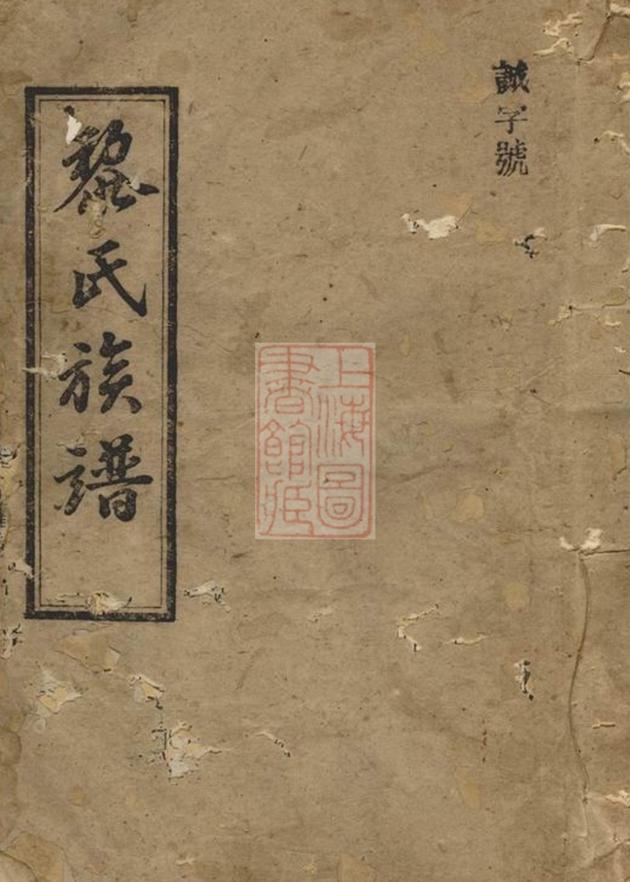 誠字號
黎氏族譜
上海圖
書館藏